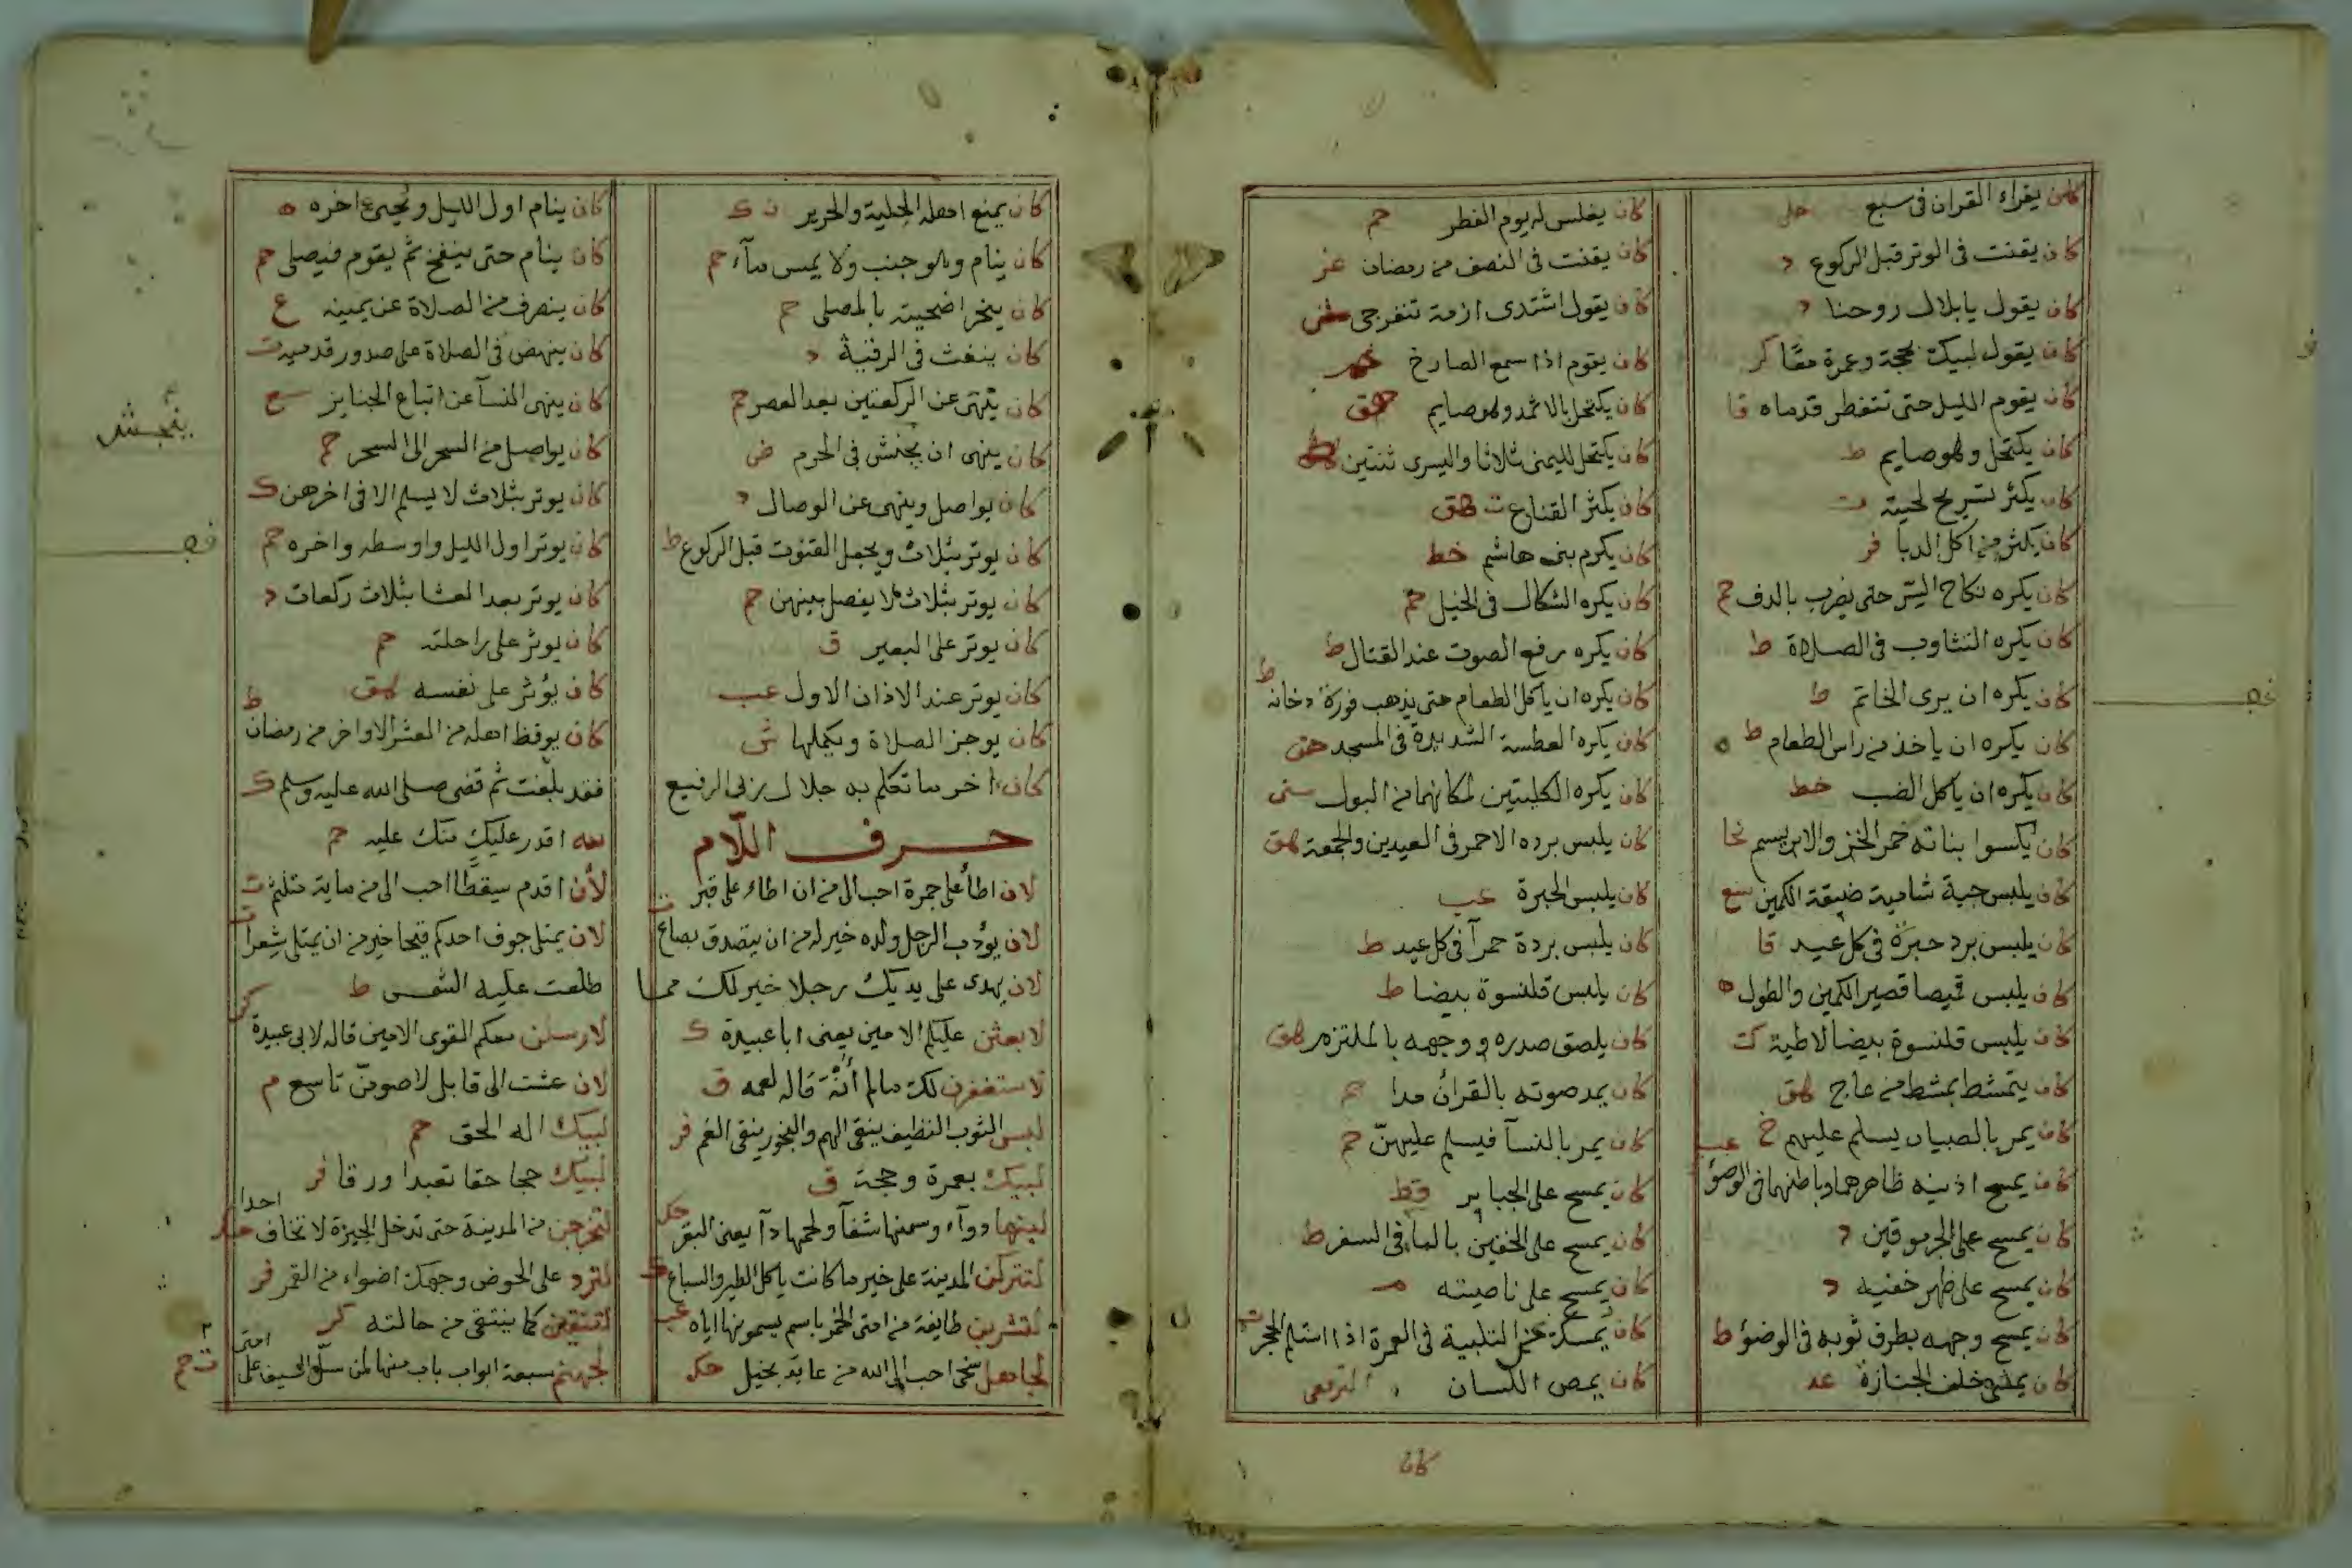 كان يقراء القران فى سبع حل
كان يقنت فى الوتر قبل الركوع د
كان يقول يا بلال روحنا د
كان يقول لبيك بحجة وعمرة معًا كر
كان يقوم الليل حتى تتفطر قدماه قا
كان يكتحل وهو صايم ط
كان يكثر تسريح لحيته ت
كان يكثر من اكل الدبا فر
كان يكره نكاح السر حتى يضرب بالدف حم
كان يكره التثاوب فى الصلاة ط
كان يكره ان يرى الخاتم ط
كان يكره ان ياخذ من راس الطعام ط
كان يكره ان ياكل الضب خط
كان يكسوا بناته خمر الخز والابريسم نحا
كان يلبس جبة شامية ضيقة الكمين
كان يلبس برد حبرة فى كل عيد قا
كان يلبس قميصا قصير الكمين والطول ه
كان يلبس قلنسوة بيضا لاطية كت
كان يتمشط بمشط من عاج هق
كان يمر بالصبيان يسلم عليهم خ
كان يمسح اذنيه ظاهرهما وباطنهما فى الوضؤ عب
كان يمسح على الجرموقين د
كان يمسح على ظهر خفيه د
كان يمسح وجهه بطرف ثوبه فى الوضؤ ط
كان يمشى خلف الجنازة عد
كان يغلس له يوم الفطر حم
كان يقنت فى النصف من رمضان عز
كان يقول اشتدى ازمة تنفرجى
كان يقوم اذا سمع الصارخ
كان يكتحل بالاثمد وهو صايم هق
كان يكتحل لليمنى ثلاثا واليسرى ثنتين
كان يكثر القناع ت هق
كان يكرم بنى هاشم خط
كان يكره الشكال فى الخيل حم
كان يكره رفع الصوت عند القتال ط
كان يكره ان ياكل الطعام حتى يذهب فورة دخانه ط
كان يكره العطسة الشديدة فى المسجد هق
كان يكره الكليتين لمكانهما من البول سنى
كان يلبس برده الاحمر فى العيدين والجمعة هق
كان يلبس الحبرة عب
كان يلبس بردة حمرآ فى كل عيد ط
كان يلبس قلنسوة بيضا ط
كان يلصق صدره ووجهه بالملتزم هق
كان يمد صوته بالقران مدا حم
كان يمر بالنسآ فيسلم عليهنّ حم
كان يمسح على الجباير قط
كان يمسح على الخفين بالمآ فى السفر ط
كان يمسح على ناصيته م
كان يمسك عن التلبية فى العمرة اذا استلم الحجر ت
كان يمص اللسان الترقفى
كان
كان يمنع اهله الحلية والحرير ن ك
كان ينام وهو جنب ولا يمس مآء حم
كان ينحر اضحيته بالمصلى حم
كان ينفث فى الرقية د
كان ينهى عن الركعتين بعد العصر حم
كان ينهى ان يجنش فى الحرم ض
كان يواصل وينهى عن الوصال د
كان يوتر بثلاث ويجعل القنوت قبل الركوع ط
كان يوتر بثلاث لا يفصل بينهن حم
كان يوتر على البعير ق
كان يوتر عند الاذان الاول عب
كان يوجز الصلاة ويكملها ش
كان اخر ما تكلم به جلال ربى الرفيع
حرف اللّام
لان اطأ على جمرة احب الى من ان اطاء على قبر
لان يؤدب الرجل ولده خير له من ان يتصدق بصاع ت
لان يهدى على يديك رجلا خير لك مما
لابعثن عليكم الامين يعنى ابا عبيدة ك
لاستغفرن لك مالم أنْهَ قاله لعمه ق
لبس الثوب النظيف ينقى الهم والبخور ينقى الغم فر
لبيك بعمرة وحجة ق
لبنها دوآء وسمنها شفآ ولحمها دآ يعنى البقر حك
لتتركن المدينة على خير ما كانت ياكل الطير والسباع
لتشربن طايفة من امتى الخمر باسم يسمونها اياه عب
لجاهل سخى احب الى الله من عابد بخيل حك
كان ينام اول الليل ويحيى اخره ه
كان ينام حتى ينفخ ثم يقوم فيصلى حم
كان ينصرف من الصلاة عن يمينه ع
كان ينهض فى الصلاة على صدور قدميه ت
كان ينهى النسآ عن اتباع الجنايز
كان يواصل من السحر الى السحر حم
كان يوتر بثلاث لا يسلم الا فى اخرهن ك
كان يوتر اول الليل واوسطه واخره حم
كان يوتر بعد العشا بثلاث ركعات د
كان يوتر على راحلته حم
كان يؤثر على نفسه هق
كان يوقظ اهله من العشر الاواخر من رمضان ط
فقد بلغت ثم قضى صلى الله عليه وسلم ك
لله اقدر عليك منك عليه حم
لأن اقدم سقطًا احب الى من ماية
لان يمتلى جوف احدكم قيحا خير من ان يمتلى شعرا ت
طلعت عليه الشمس ط
لارسلن معكم القوى الامين قاله لابى عبيدة كر
لان عشت الى قابل لاصومنّ تاسع م
لبيك اله الحق حم
لبيك حجا حقا تعبدا ورقا فر
لتخرجن من المدينة حتى تدخل الحيرة لا تخاف احدا
لترد على الحوض وجهك اضواء من القمر فر
لتنتقين كما ينتقى من حالته كر
لجهنم سبعة ابواب باب منها لمن سلّ السيف على امتى ت حم
ينجش